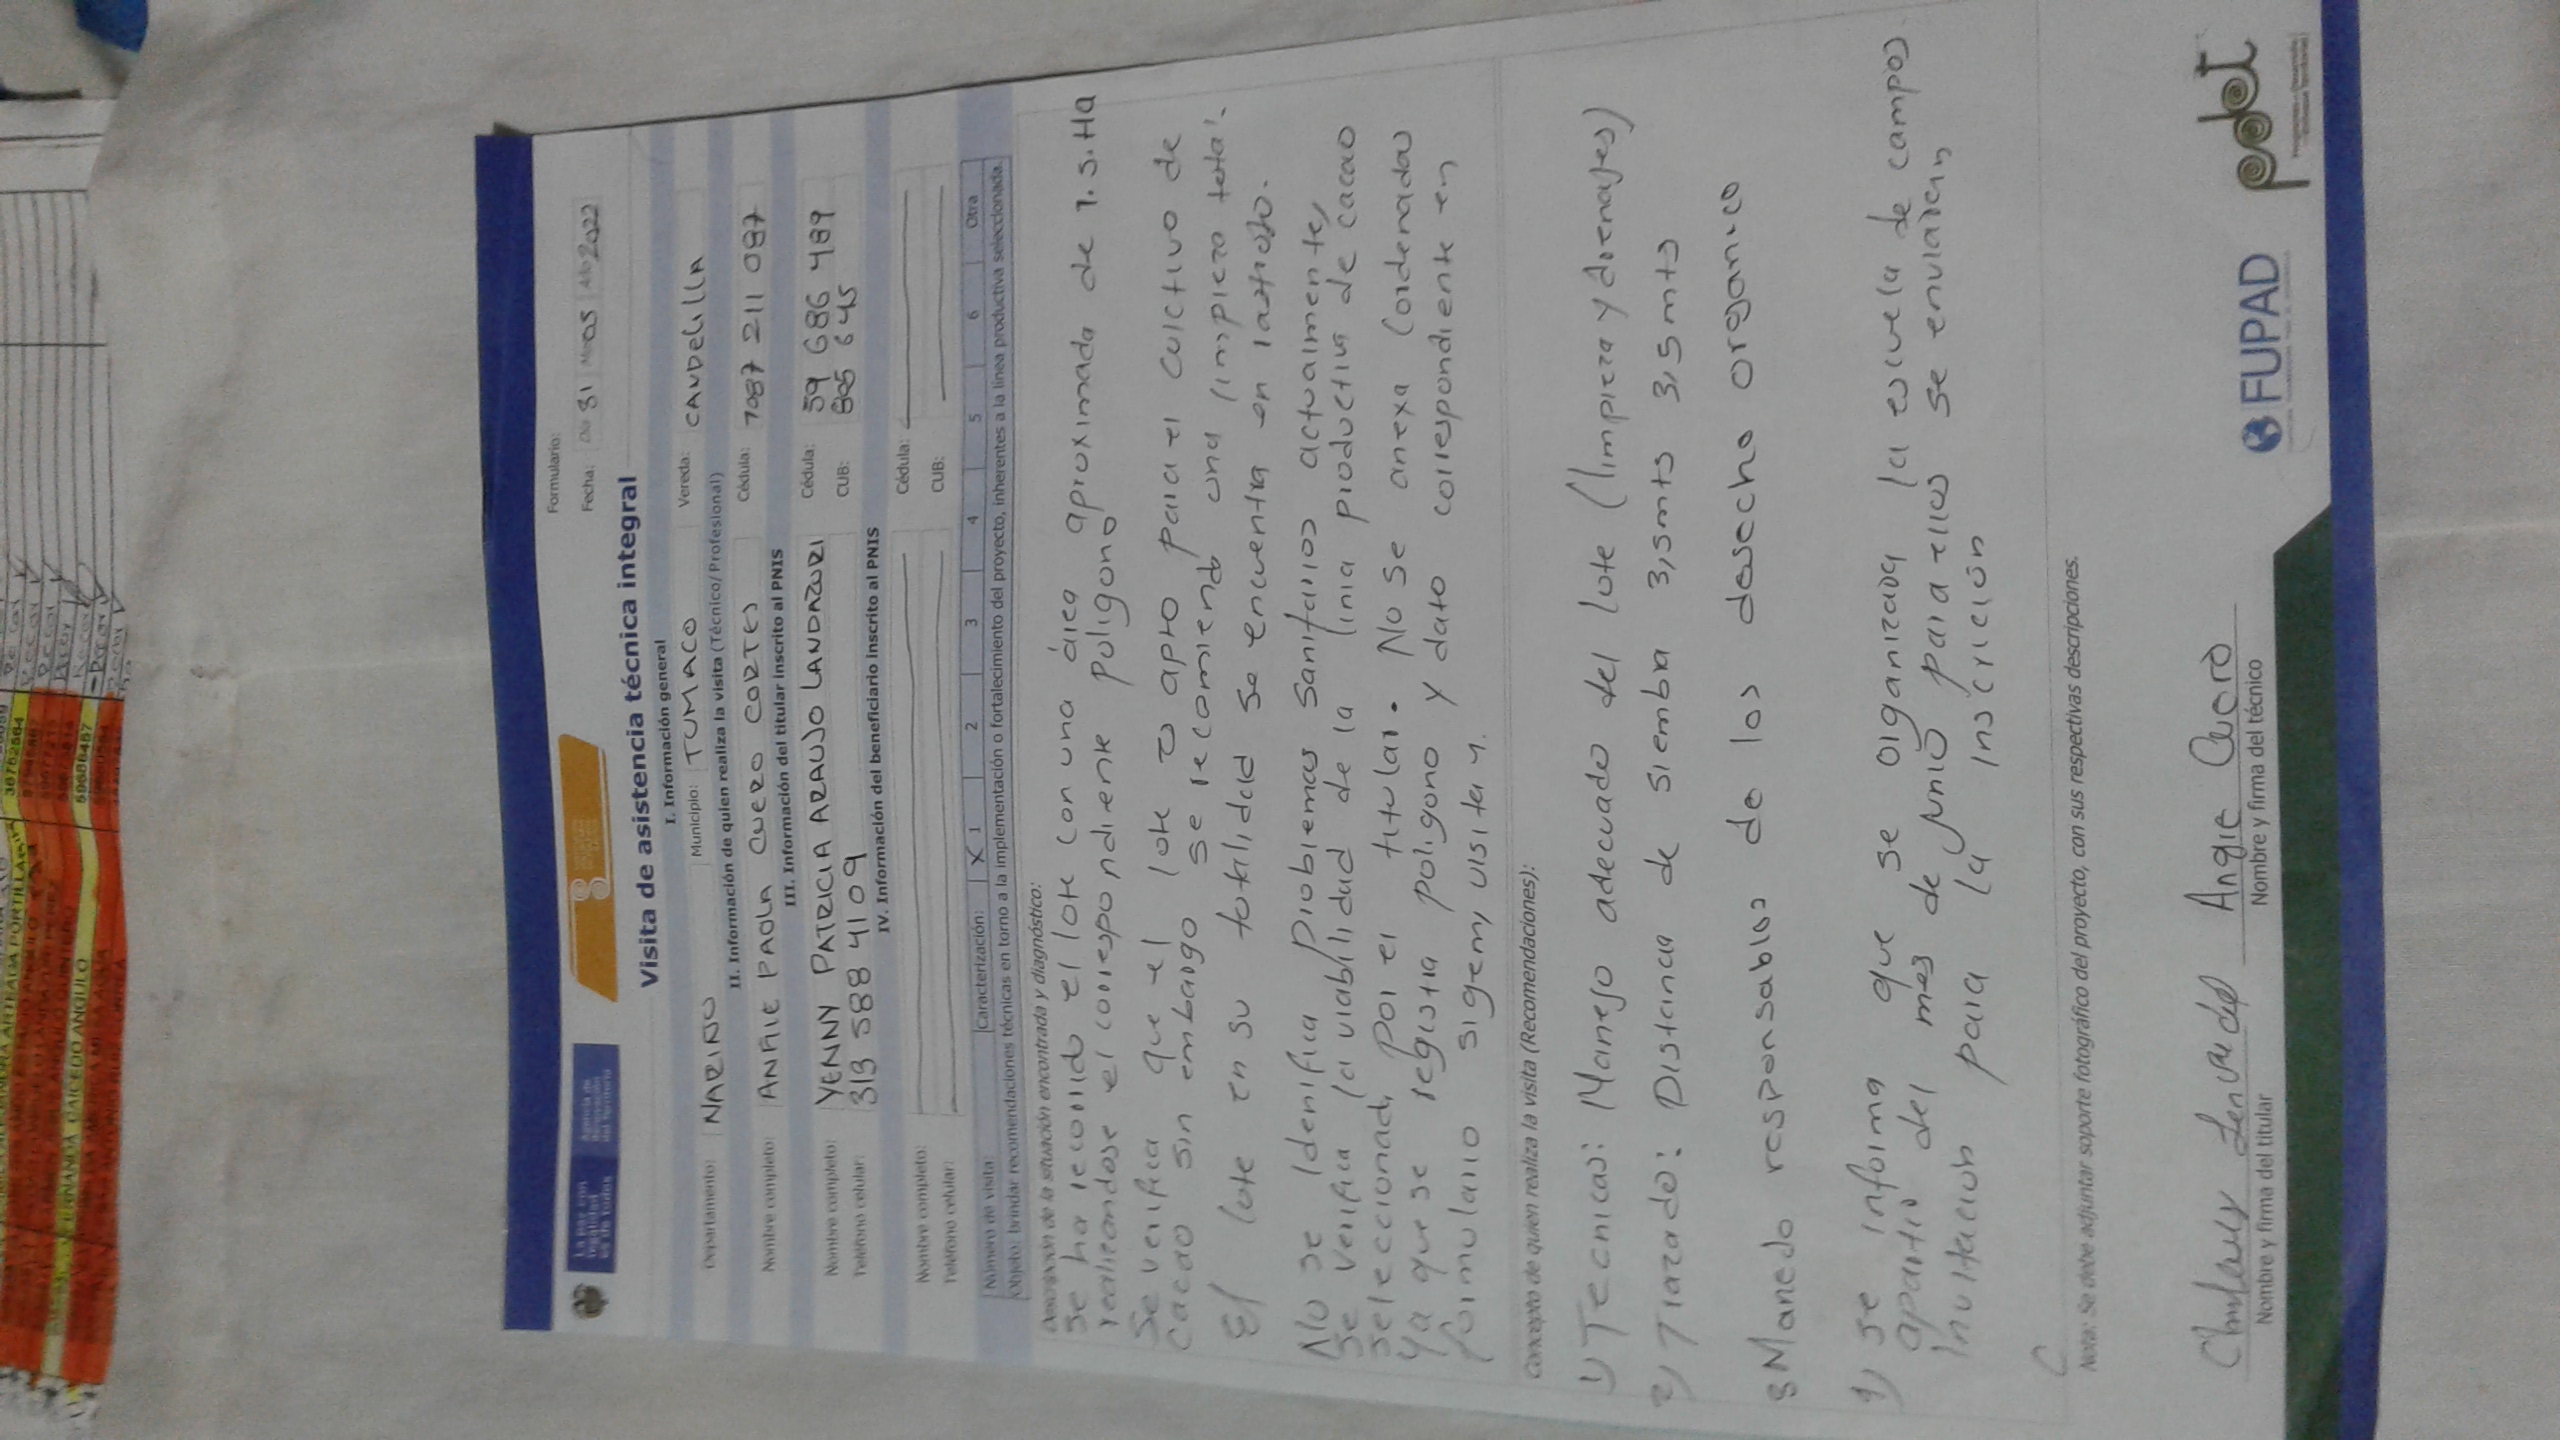 La paz con
legalidad
es de todos
Agencia de
Renovación
del Territorio
Formulario:
Fecha: Día 31 Mes 05 Año 2022
Visita de asistencia técnica integral
I. Información general
Departamento: NARIÑO Municipio: TUMACO Vereda: CANDELILLA
II. Información de quien realiza la visita (Técnico/Profesional)
Nombre completo: ANFIE PAOLA CUERO CORTES Cédula: 1087 211 087
III. Información del titular inscrito al PNIS
Nombre completo: YENNY PATRICIA ARAUJO LANDAZURI Cédula: 59 686 489
Teléfono celular: 313 588 4109 CUB: 645
IV. Información del beneficiario inscrito al PNIS
Nombre completo: Cédula:
Teléfono celular: CUB:
Número de visita: Caracterización: X 1 2 3 4 5 6 Otra
Objeto: brindar recomendaciones técnicas en torno a la implementación o fortalecimiento del proyecto, inherentes a la línea productiva seleccionada.
Descripción de la situación encontrada y diagnóstico:
Se ha recorrido el lote con una área aproximada de 1.5.Ha
realizandose el correspondiente poligono
Se verifica que el lote es apto para el cultivo de
cacao sin embargo se recomienda una limpieza total.
El lote en su totalidad se encuentra en lastrojo.
No se Idenifica problemas sanitarios actualmente,
se verifica la viabilidad de la linia productiva de cacao
seleccionada por el titular. No se anexa cordenadas
ya que se registra poligono y dato correspondiente en
formulario sigem, visita 1.
Concepto de quien realiza la visita (Recomendaciones):
1) Tecnicas: Manejo adecuado del lote (limpieza y drenajes)
2) Trazado: Distancia de siembra 3,5mts 3,5mts
3 Manedo responsables de los desecho organico
4) se informa que se organizara la escuela de campos
apartir del mes de junio para ellos se enviaran
Invitacion para la Inscricion
Nota: Se debe adjuntar soporte fotográfico del proyecto, con sus respectivas descripciones.
Angie Cuero
Nombre y firma del titular Nombre y firma del técnico
FUPAD
pdet